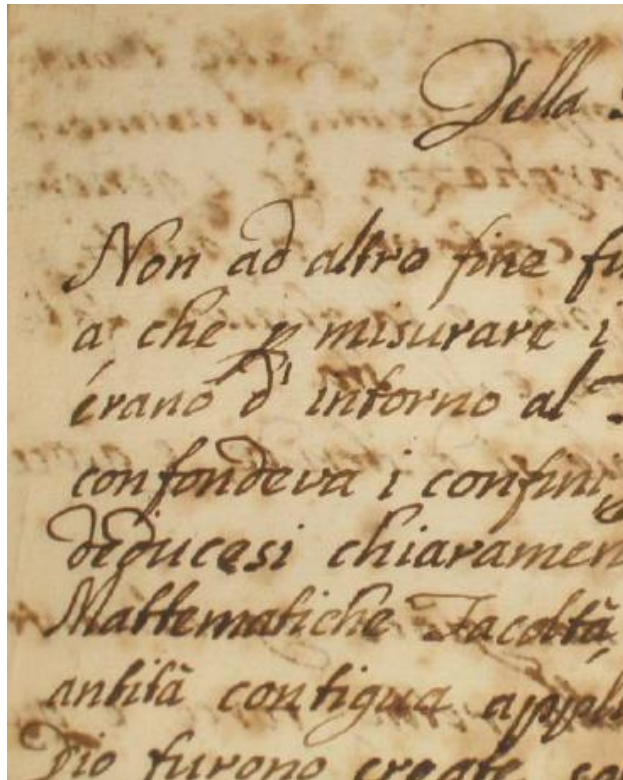 Della
Non ad altro fine fu
a che p misurare i
érano d'intorno al
confondeva i confini,
deducesi chiaramen
Mattematiche Facoltà
antità contigua appli
Dio furono create co